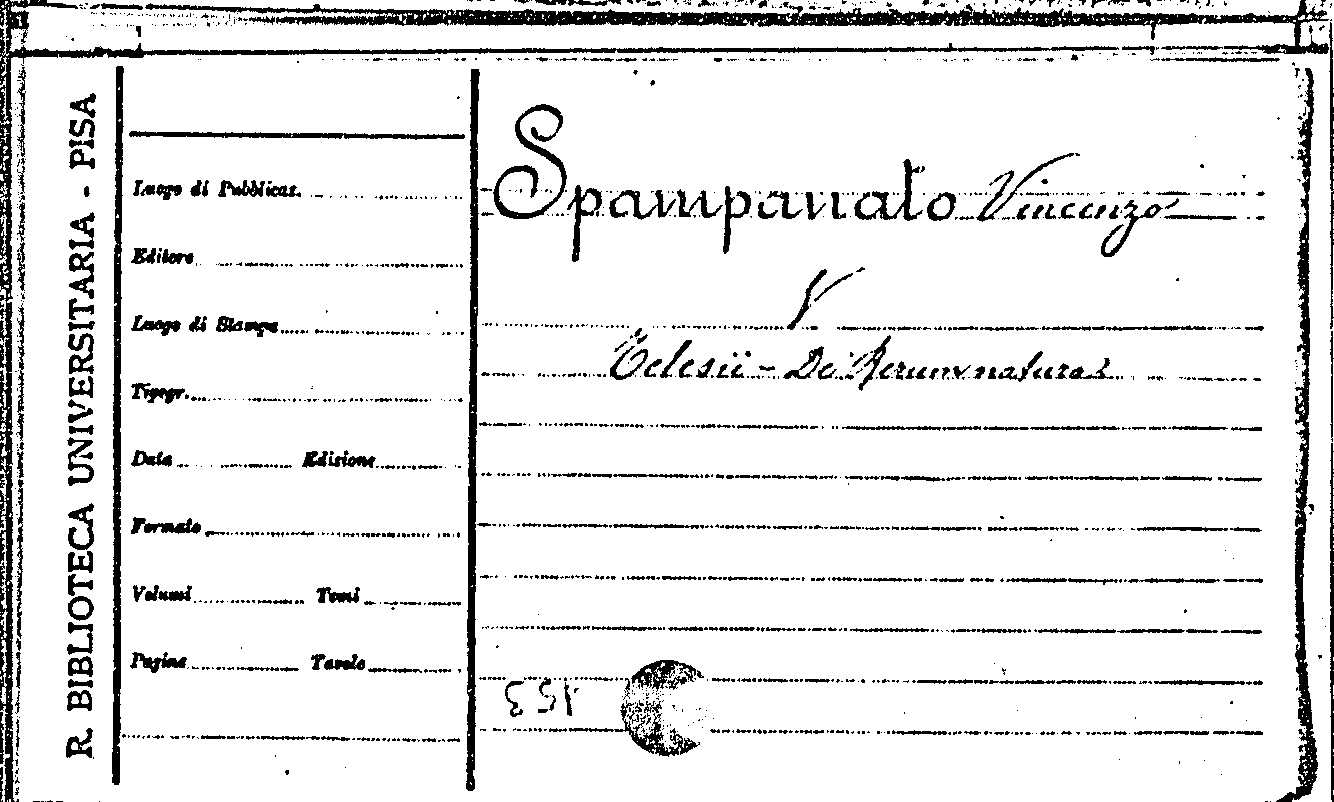 R. BIBLIOTECA UNIVERSITARIA - PISA
Luogo di Pubblicaz.
Editore
Luogo di Stampa
Tipogr.
Data Edizione
Formato
Volumi Tomi
Pagine Tavole
Spampanato Vincenzo
V
Telesii - De Rerum natura
153